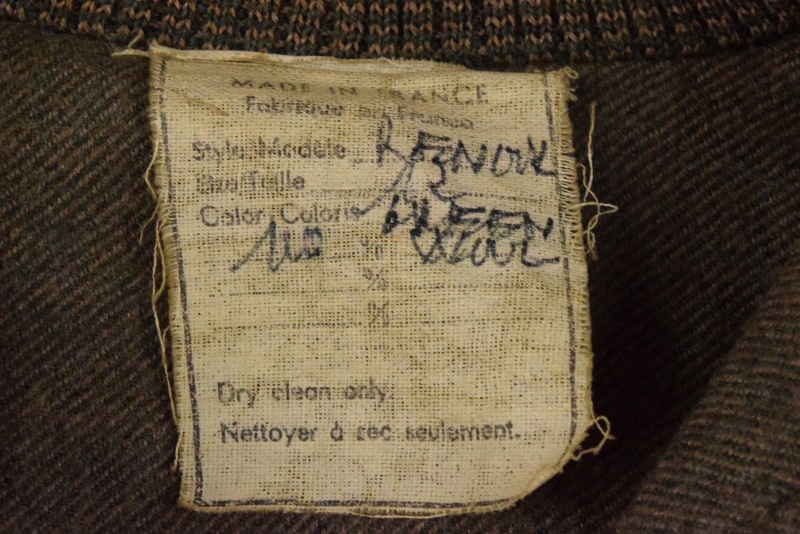 MADE IN FRANCE
Fabriqué en France
Style Modèle RENOUX
Size Taille
Color Coloris GREEN
100 % WOOL
%
%
Dry clean only.
Nettoyer à sec seulement.